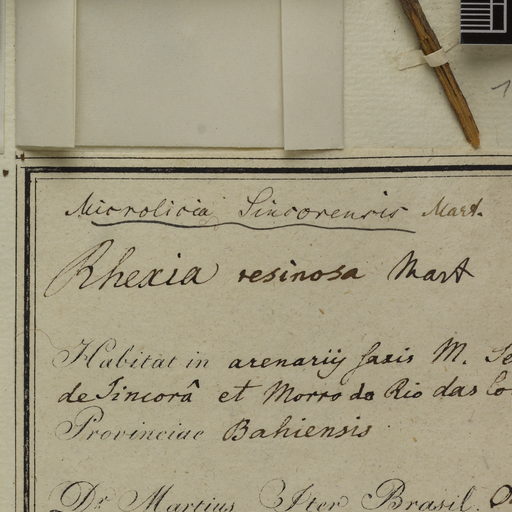 Microlicia Sincorensis Mart.
Rhexia resinosa Mart
Habitat in arenariis saxis M. Se
de Sincorâ et Morro do Rio das Co
Provinciae Bahiensis
Dr. Martius Iter Brasil.